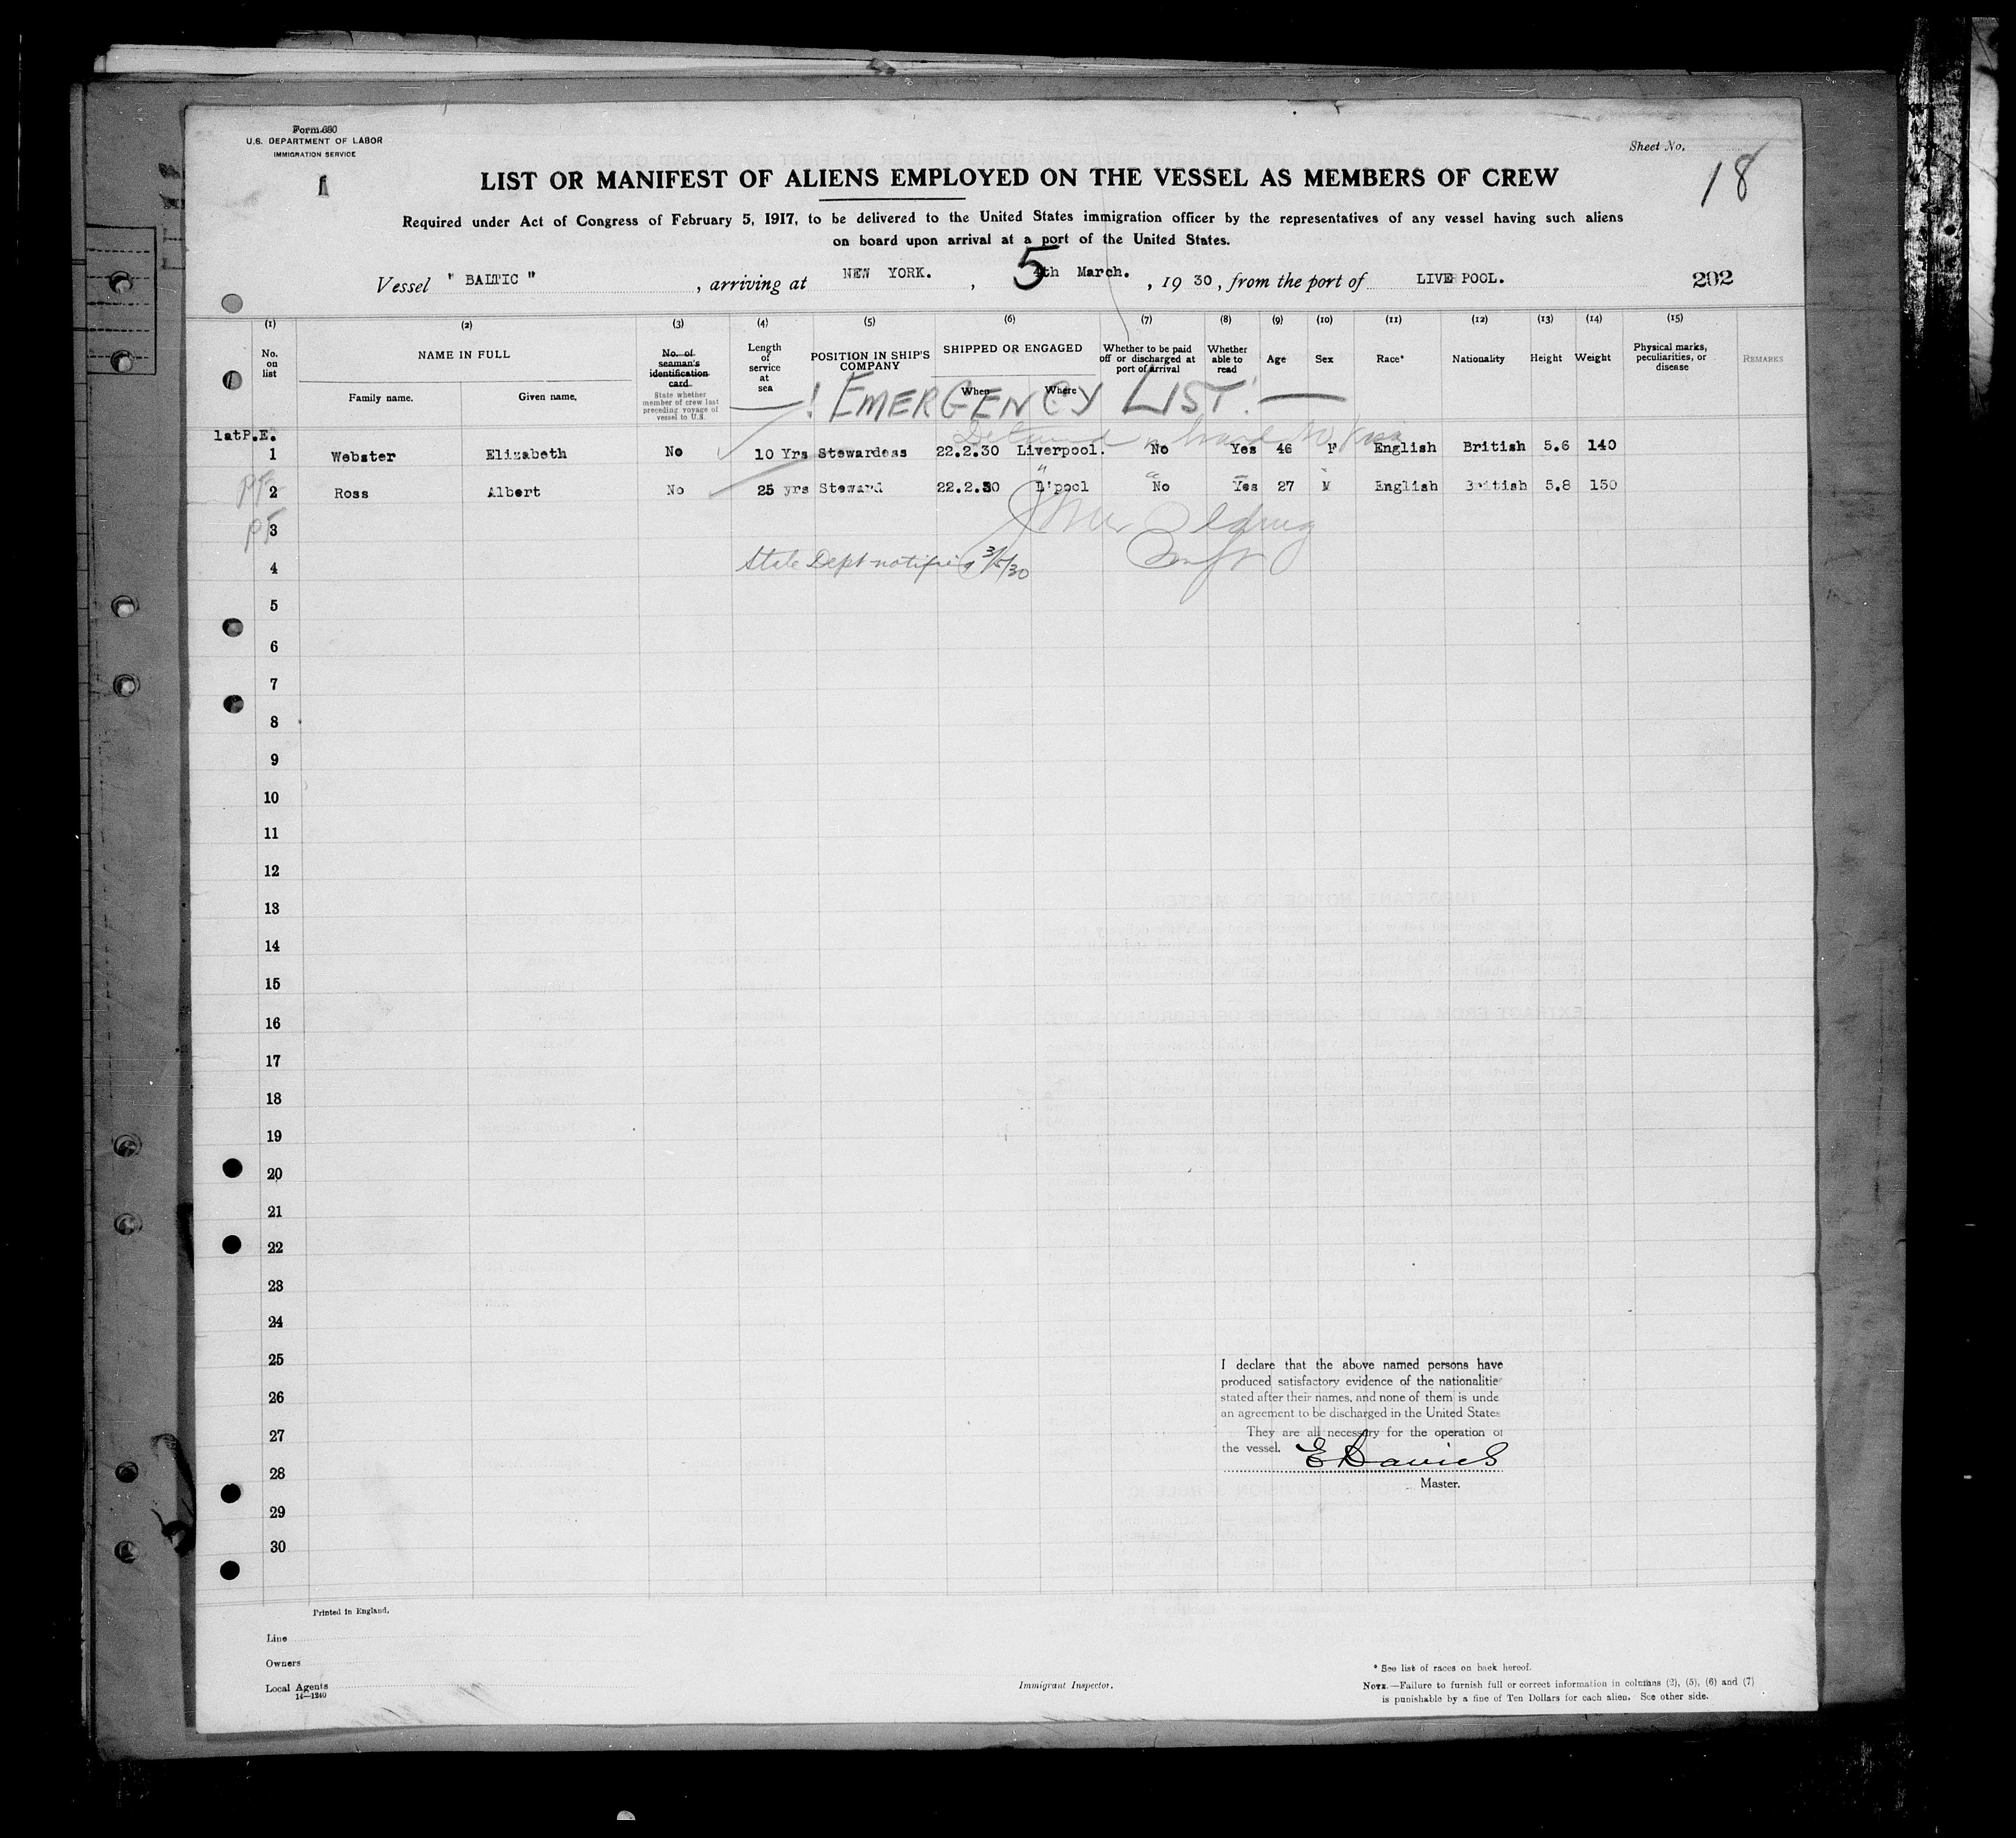 Form 680
U.S. DEPARTMENT OF LABOR
IMMIGRATION SERVICE
1
Sheet No.
18
LIST OR MANIFEST OF ALIENS EMPLOYED ON THE VESSEL AS MEMBERS OF CREW
Required under Act of Congress of February 5, 1917, to be delivered to the United States immigration officer by the representatives of any vessel having such aliens
on board upon arrival at a port of the United States.
Vessel " BALTIC ", arriving at NEW YORK., 5 4th March., 1930, from the port of LIVE POOL. 202
(1) (2) (3) (4) (5) (6) (7) (8) (9) (10) (11) (12) (13) (14) (15)
No. on list NAME IN FULL Family name. Given name. No. of seaman's identification card. State whether member of crew last preceding voyage of vessel to U.S. Length of service at sea POSITION IN SHIP'S COMPANY SHIPPED OR ENGAGED When Where Whether to be paid off or discharged at port of arrival Whether able to read Age Sex Race* Nationality Height Weight Physical marks, peculiarities, or disease REMARKS
! EMERGENCY LIST!
1atP.E.
1 Webster Elizabeth No 10 Yrs Stewardess 22.2.30 Liverpool. No Yes 46 F English British 5.6 140
PF 2 Ross Albert No 25 yrs Steward 22.2.30 L'pool No Yes 27 M English British 5.8 150
PF 3
State Dept notified 3/5/30
4
5
6
7
8
9
10
11
12
13
14
15
16
17
18
19
20
21
22
23
24
25
26
27
28
29
30
I declare that the above named persons have
produced satisfactory evidence of the nationalitie
stated after their names, and none of them is unde
an agreement to be discharged in the United States
They are all necessary for the operation of
the vessel.
E Davies
Master.
Printed in England.
Line
Owners
Local Agents
14—1240
Immigrant Inspector.
* See list of races on back hereof.
NOTE.—Failure to furnish full or correct information in columns (2), (5), (6) and (7)
is punishable by a fine of Ten Dollars for each alien. See other side.